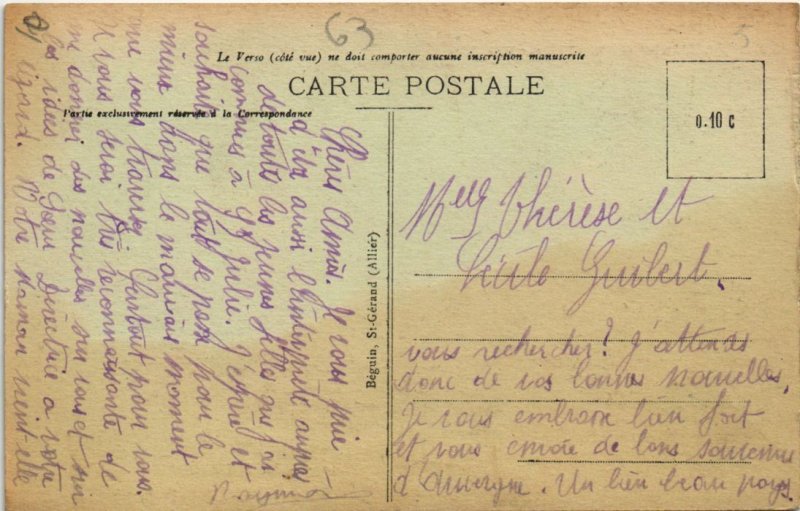 63
5
Le Verso (côté vue) ne doit comporter aucune inscription manuscrite
CARTE POSTALE
Partie exclusivement réservée à la Correspondance
0.10 c
Béguin, St-Gérand (Allier)
Melles Thérèse et
Cécile Guibert.
Chères Amies. Je vous prie
d'êtr aussi l'interprète auprès
de toutes les jeunes filles que j'ai
connues à Ste Julie. J'espère et
souhaite que tout se passe pour le
mieux dans le mauvais moment
que vous traversez. Surtout pour vous.
Je vous serai très reconnaissante de
me donner des nouvelles sur vous et sur
les idées de Sœur Directrice à votre
égard. Votre Maman vient-elle
vous rechercher? J'attends
donc de vos bonnes nouvelles.
Je vous embrasse bien fort
et vous envoie de bons souvenirs
d'Auvergne. Un bien beau pays.